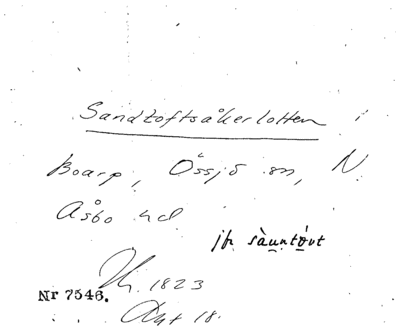 Sandtoftsåkerlotten i
Boarp, Össjö sn, N
Åsbo hd
jfr sàuntóvt
1823
Nr 7546.
Akt 18.